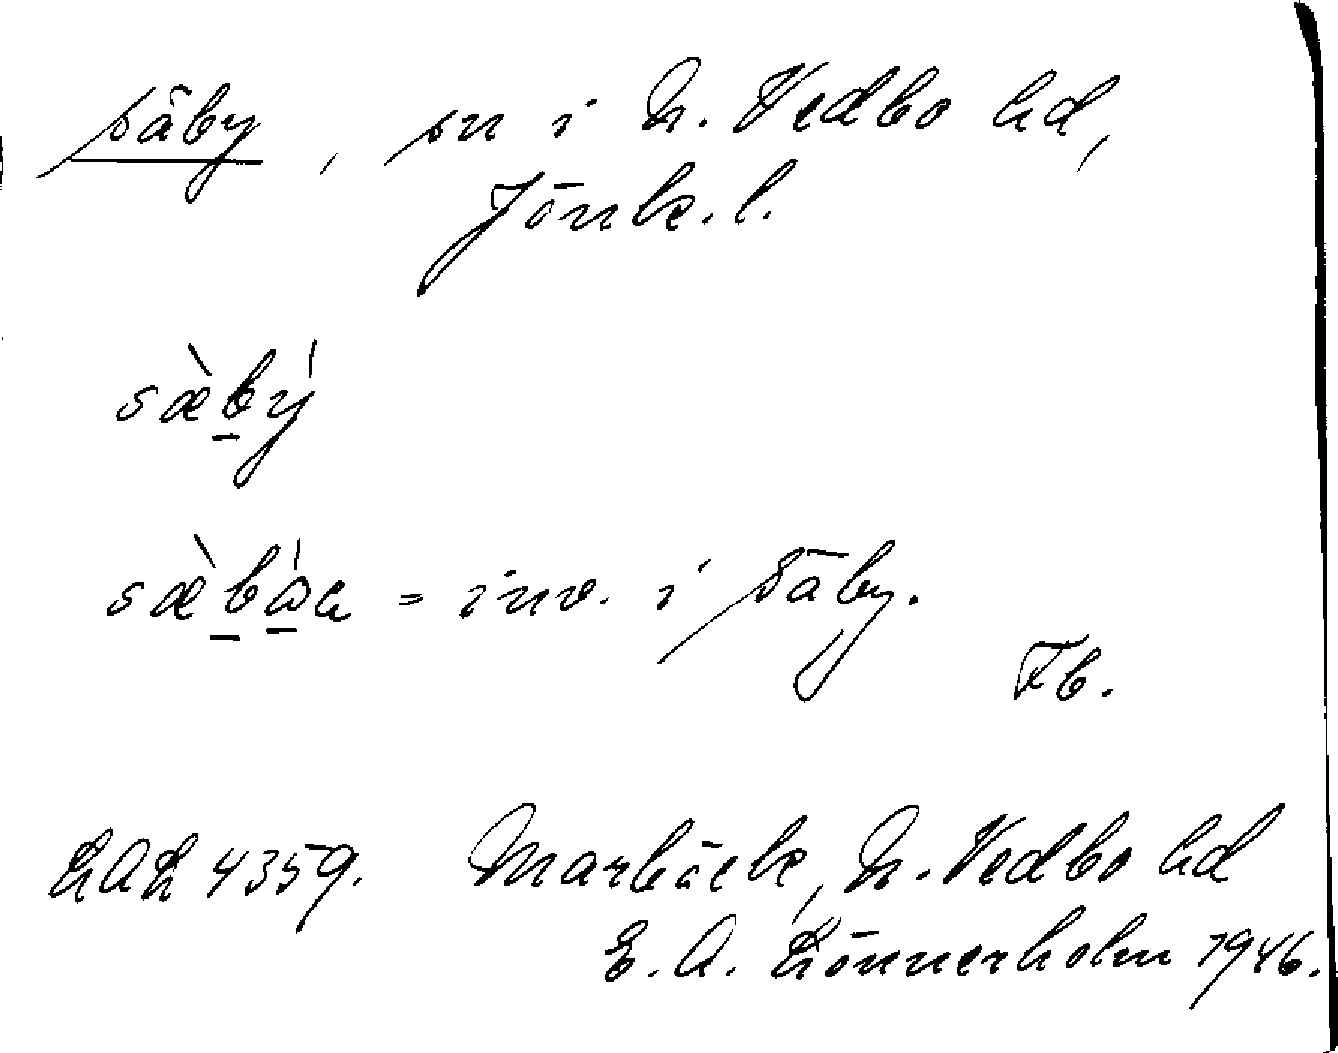 Säby, sn i N. Vedbo hd,
Jönk. l.
sæ̀bý
= inv. i Säby.
Fb.
LAL 4359. Marbäck, N. Vedbo hd
E. A. Lönnerholm 1946.